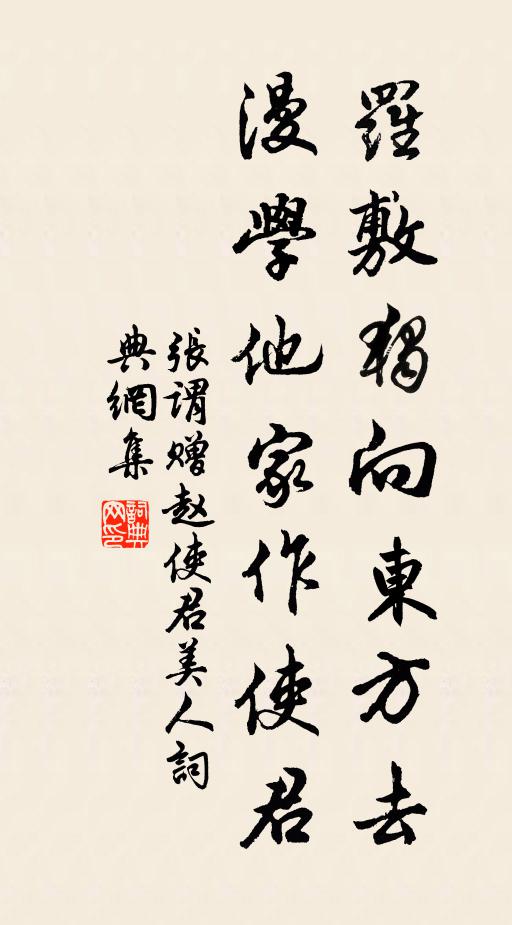 羅敷獨向東方去
漫學他家作使君
張謂赠赵使君美人詞
典網集
詞典
网印